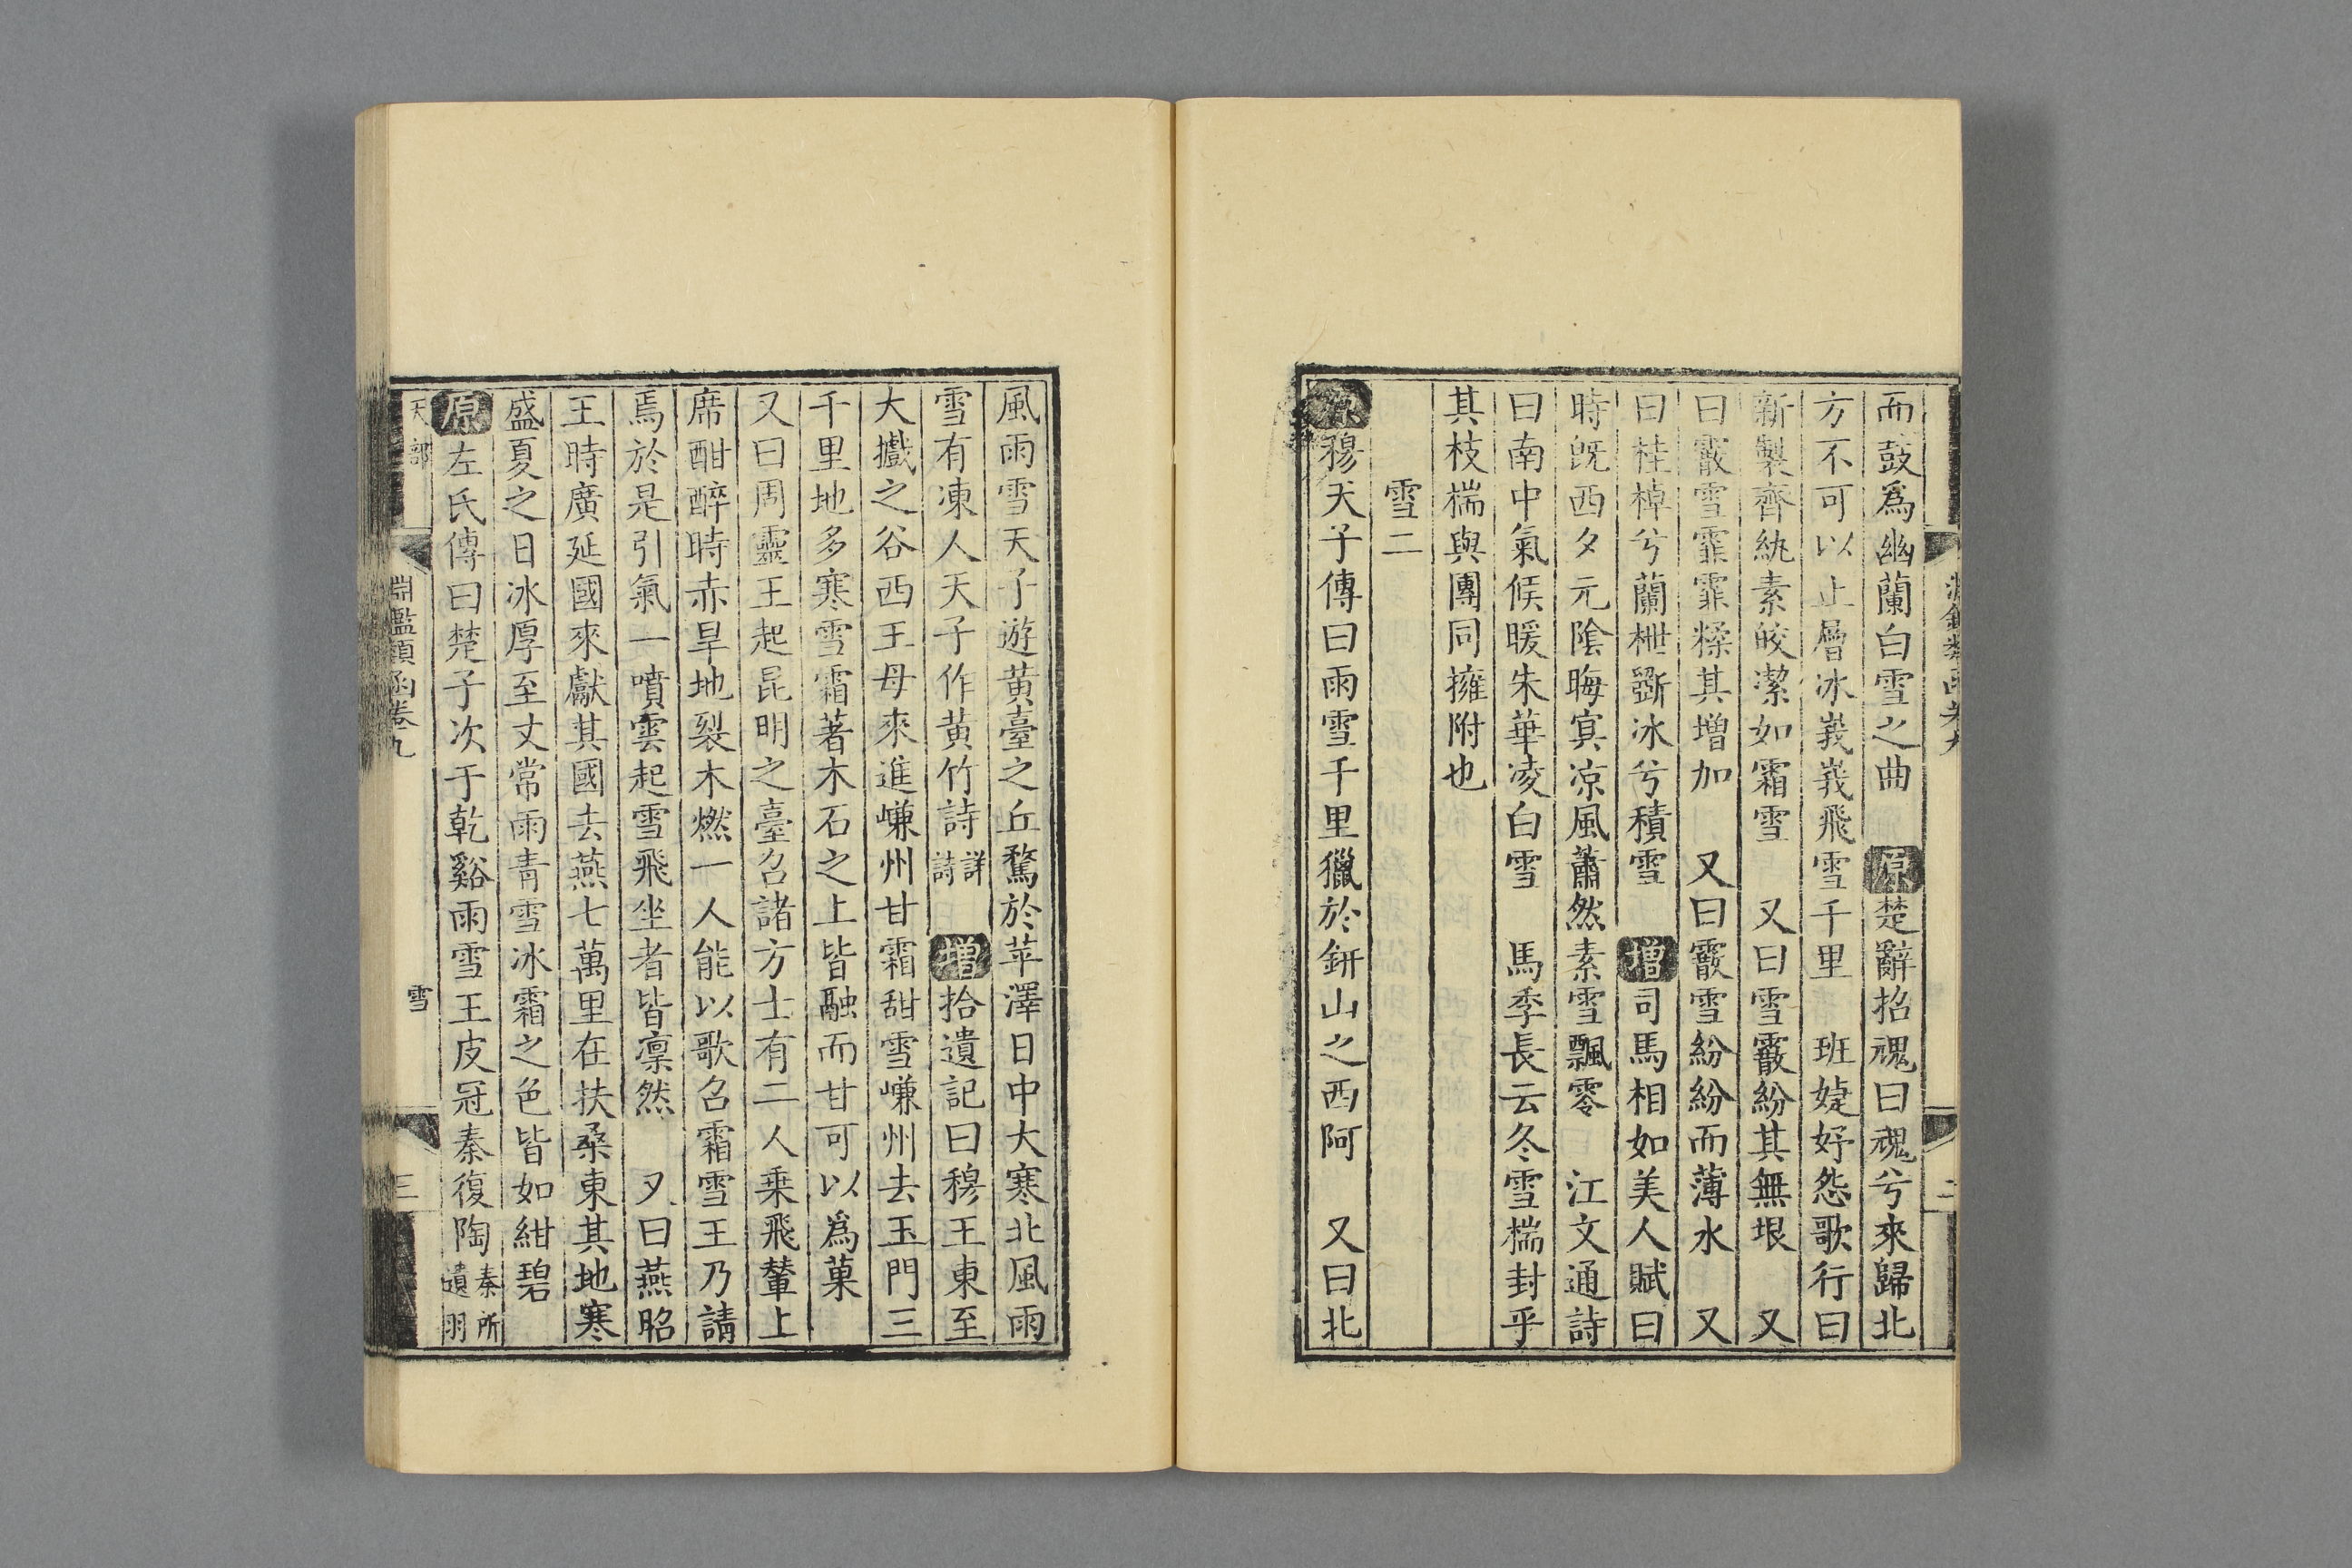 而鼓爲幽蘭白雪之曲 原楚辭招魂曰魂兮來歸北
方不可以止層冰峩峩飛雪千里 班婕妤怨歌行曰
新製齊紈素皎潔如霜雪 又曰雪霰紛其無垠 又
曰霰雪霏霏糅其增加 又曰霰雪紛紛而薄水 又
曰桂棹兮蘭枻斲冰兮積雪 增司馬相如美人賦曰
時旣西夕元陰晦冥凉風蕭然素雪飄零 江文通詩
曰南中氣候暖朱華凌白雪 馬季長云冬雪椯封乎
其枝椯與團同擁附也
雪二
原穆天子傳曰雨雪千里獵於鈃山之西阿 又曰北
風雨雪天子遊黃臺之丘騖於苹澤日中大寒北風雨
雪有凍人天子作黃竹詩詳詩 增拾遺記曰穆王東至
大㩻之谷西王母來進嵰州甘霜甜雪嵰州去玉門三
千里地多寒雪霜著木石之上皆融而甘可以爲菓
又曰周靈王起昆明之臺召諸方士有二人乗飛輦上
席酣醉時赤旱地裂木燃一人能以歌召霜雪王乃請
焉於是引氣一噴雲起雪飛坐者皆凛然 又曰燕昭
王時廣延國來獻其國去燕七萬里在扶桑東其地寒
盛夏之日冰厚至丈常雨青雪冰霜之色皆如紺碧
原左氏傳曰楚子次于乾谿雨雪王皮冠秦復陶秦所遺羽
天部
淵鑑類函卷九
雪
三